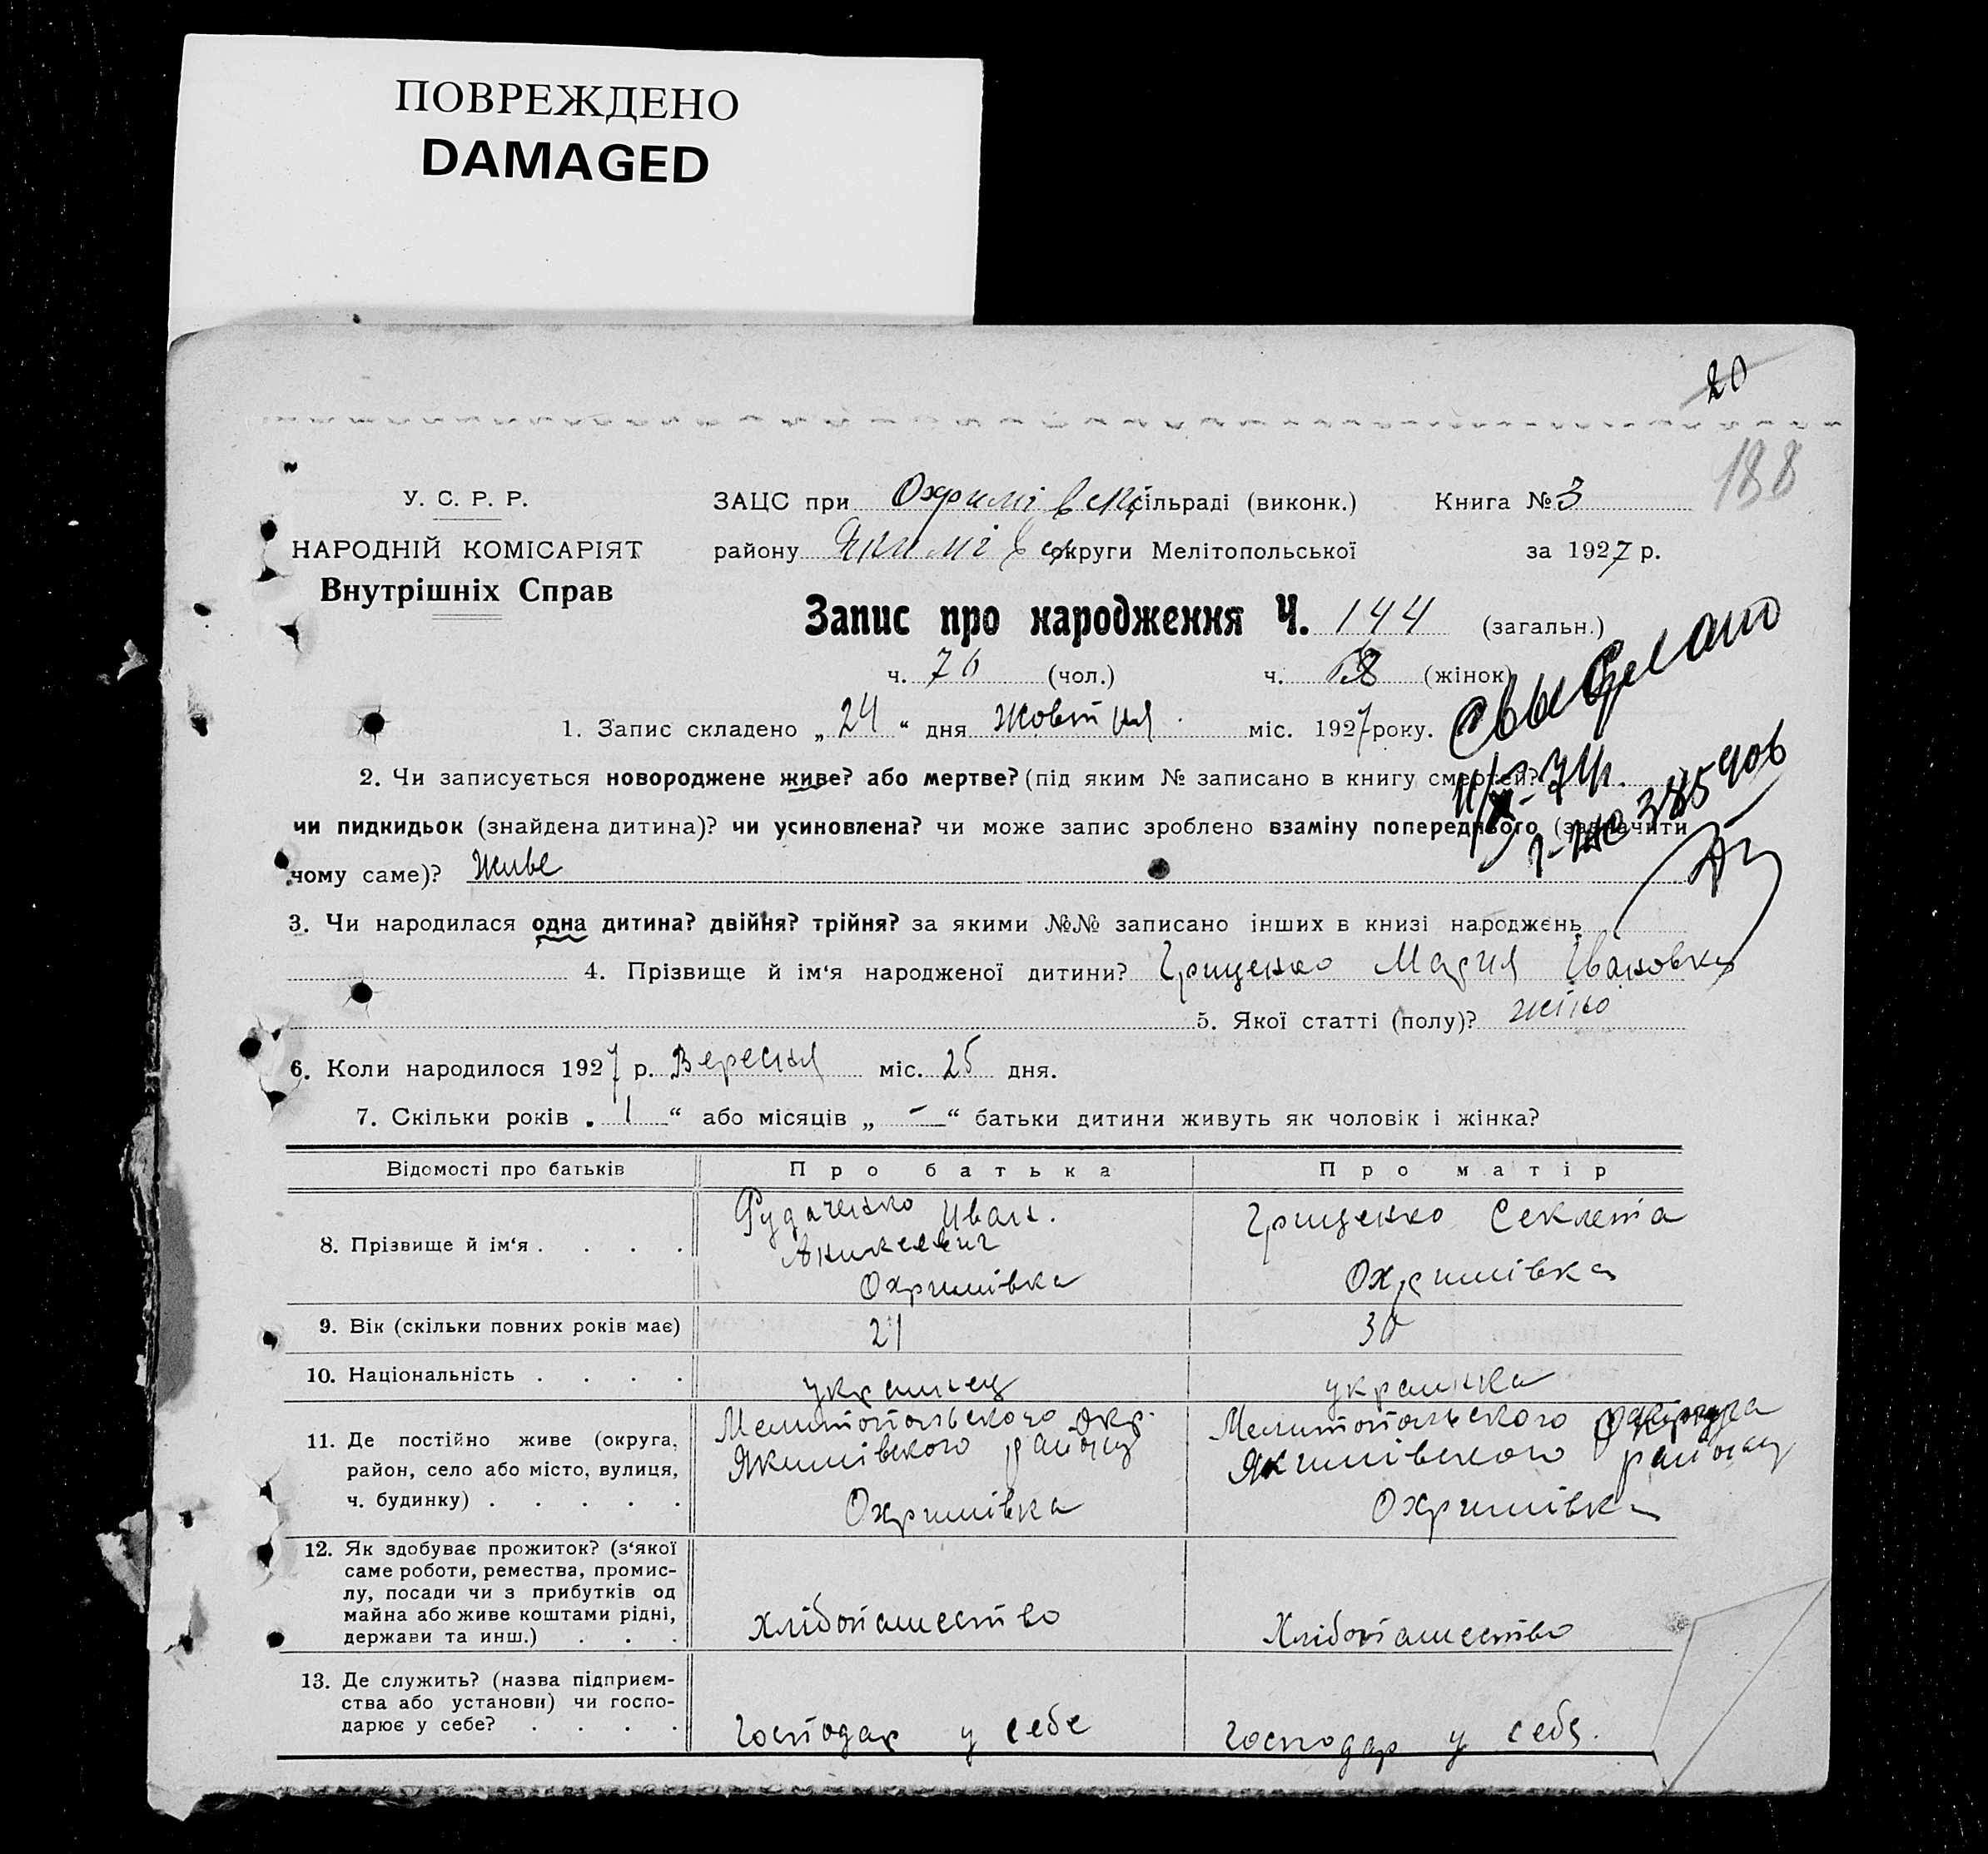 ПОВРЕЖДЕНО
DAMAGED
20
188
У. С. Р. Р.
НАРОДНІЙ КОМІСАРІЯТ
Внутрішніх Справ
ЗАЦС при Охримівськ сільраді (виконк.) Книга № 3
району Якимівськ округи Мелітопольської за 1927 р.
Запис про народження Ч. 144 (загальн.)
ч. 76 (чол.) ч. 68 (жінок)
1. Запис складено „ 24 “ дня Жовтня міс. 1927 року.
2. Чи записується новороджене живе? або мертве? (під яким № записано в книгу смертей?
чи пидкидьок (знайдена дитина)? чи усиновлена? чи може запис зроблено взаміну попереднього (зазначити
чому саме)? Живе
3. Чи народилася одна дитина? двійня? трійня? за якими №№ записано інших в книзі народжень
4. Прізвище й ім‘я народженої дитини? Грищенко Мария Івановна
5. Якої статті (полу)? жіно
6. Коли народилося 1927 р. Вересня міс. 25 дня.
7. Скільки років „ 1 “ або місяців „ - “ батьки дитини живуть як чоловік і жінка?
Відомості про батьків Про батька Про матір
8. Прізвище й ім‘я . . . . Рудаченко Иван. Грищенко Секлета
Охримівка Охримівка
9. Вік (скільки повних років має) 21 30
10. Національність . . . . украинец украинка
11. Де постійно живе (округа, Мелитопольского окр. Мелитопольского
район, село або місто, вулиця, Якимівского району Якимівского району
ч. будинку) . . . . . Охримівка Охримівка
12. Як здобуває прожиток? (з‘якої
саме роботи, ремества, промис-
лу, посади чи з прибутків од
майна або живе коштами рідні,
держави та инш.) . . . хлібопашество Хлібопашество
13. Де служить? (назва підприєм-
ства або установи) чи госпо-
дарює у себе? . . . . Господар у себе Господар у себе.